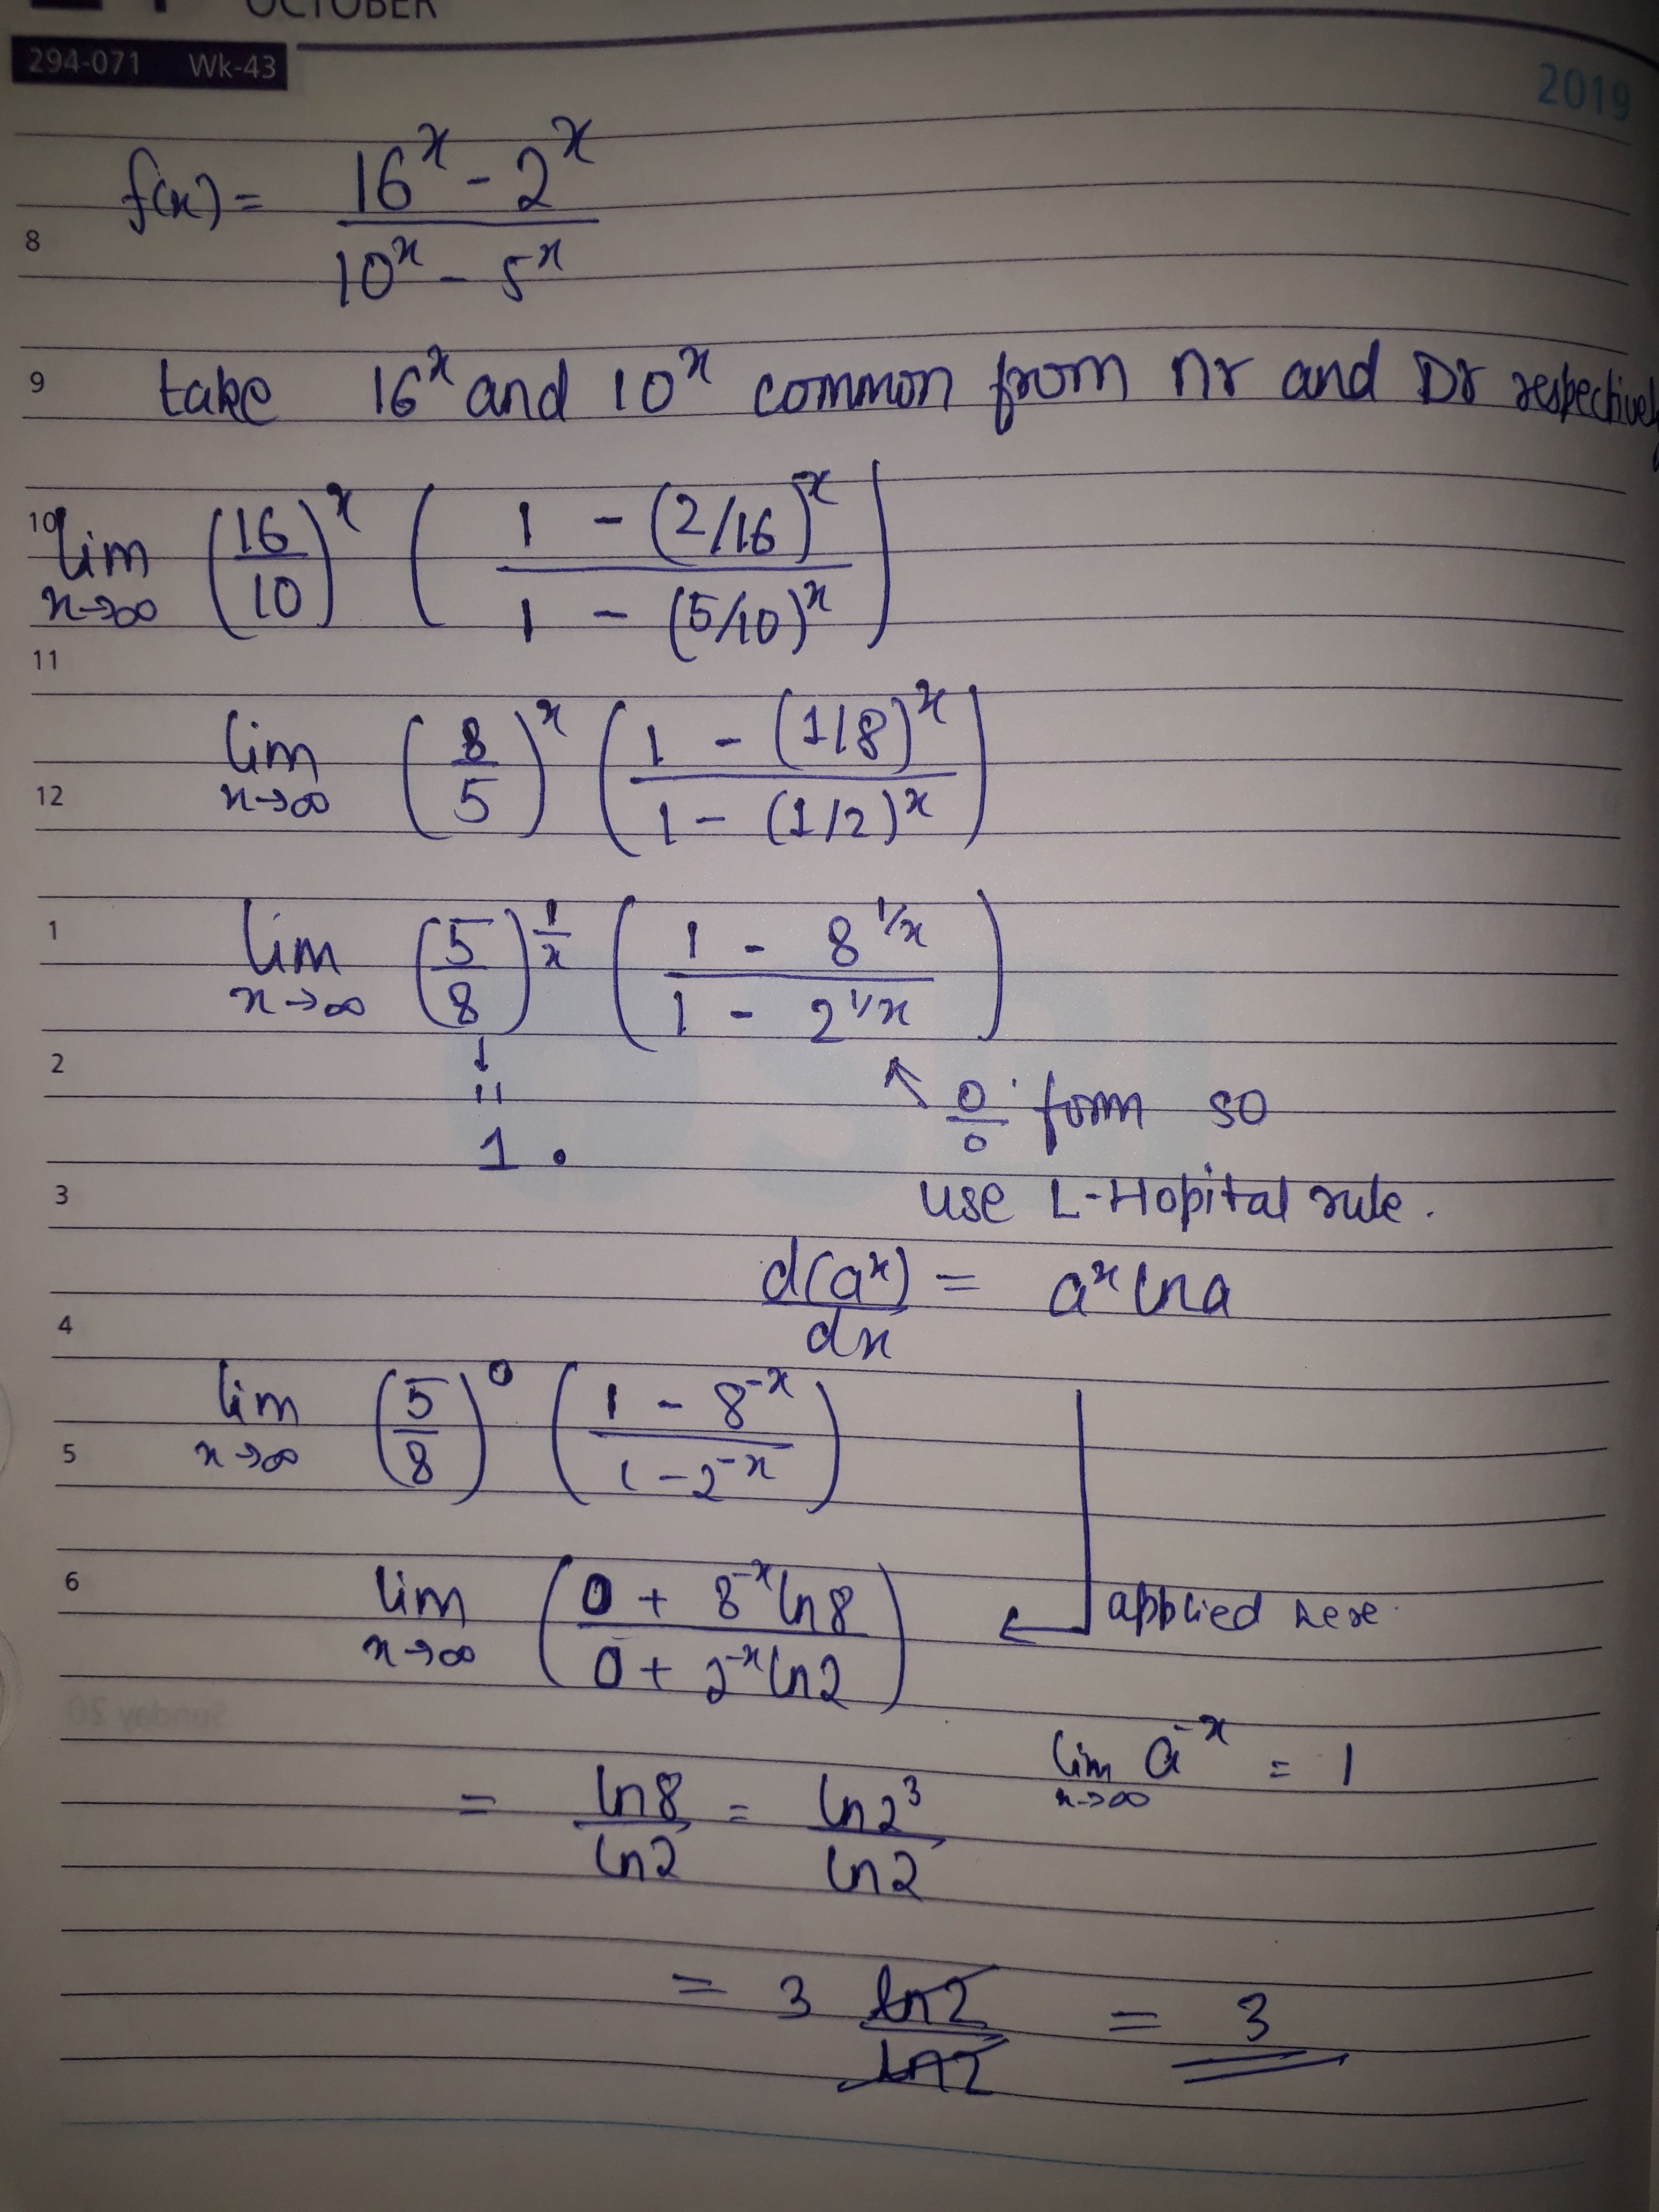 OCTOBER
294-071 Wk-43
2019
f(x) = (16^x - 2^x) / (10^x - 5^x)
8
9 take 16^x and 10^x common from Nr and Dr respectively
10 lim x→∞ (16/10)^x ( (1 - (2/16)^x) / (1 - (5/10)^x) )
11
12 lim x→∞ (8/5)^x ( (1 - (1/8)^x) / (1 - (1/2)^x) )
1 lim x→∞ (5/8)^(1/x) ( (1 - 8^(1/x)) / (1 - 2^(1/x)) )
2 ↓ ↖ 0/0 form so
= 1.
3 use L-Hopital rule.
d(a^x)/dx = a^x ln a
4
5 lim x→∞ (5/8)^0 ( (1 - 8^-x) / (1 - 2^-x) )
6 lim x→∞ ( (0 + 8^-x ln8) / (0 + 2^-x ln2) ) ← applied here.
Sunday 20
lim x→∞ a^-x = 1
= ln8/ln2 = ln2^3/ln2
= 3 ln2/ln2 = 3